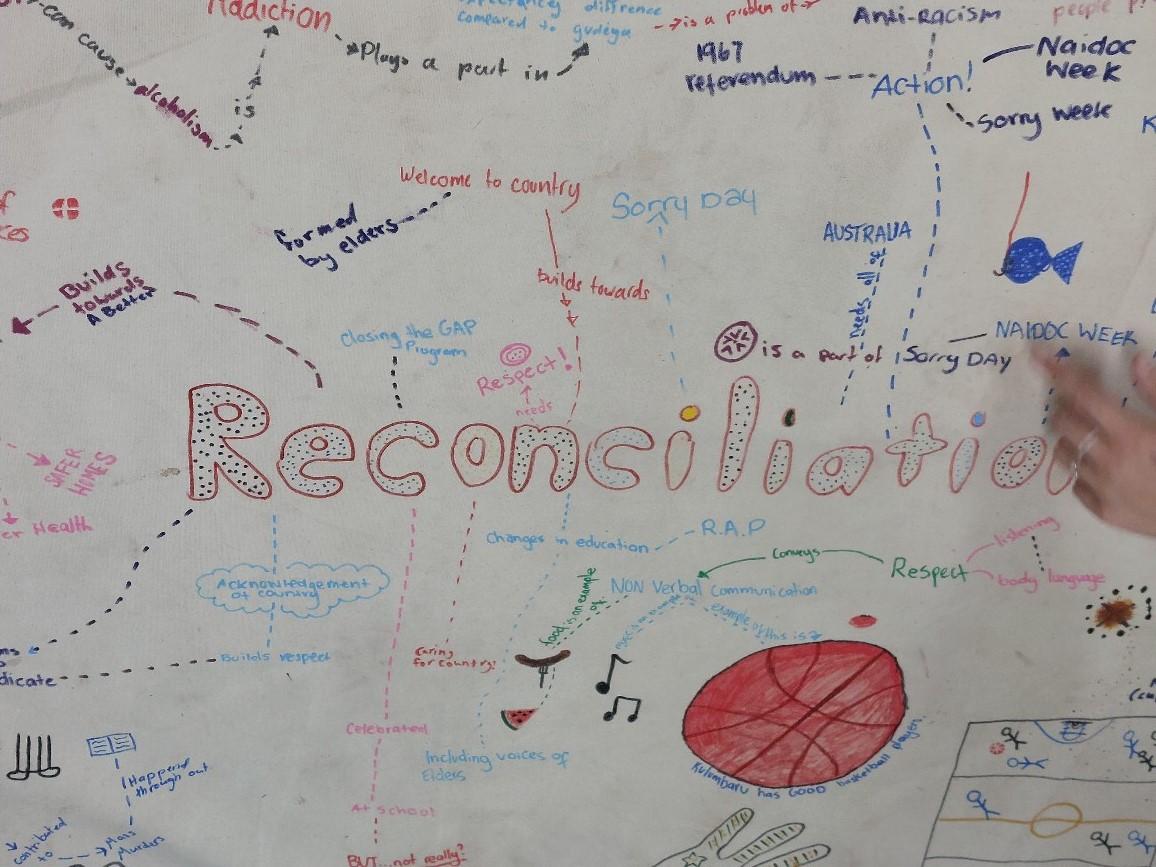 can cause
alcoholism
is
Addiction
Plays a part in
difference
compared to gudeya
is a problem of
Anti-racism
people
1967
referendum
Action!
Naidoc
Week
Sorry Week
K
Welcome to country
formed
by elders
builds towards
Sorry DAY
AUSTRALIA
needs all of
NAIDOC WEEK
is a part of Sorry DAY
Builds
towards
A Better
closing the GAP
Program
Respect!
needs
Reconciliatio
SAFER
HOMES
er Health
Changes in education
R.A.P
Acknowledgement
of country
Builds respect
dicate
NON Verbal communication
conveys
Respect
listening
body language
food is an example
of
example of this is
caring
for country!
Celebrated
At school
BUT...not really?
Including voices of
Elders
Kulumbaru has GOOD basketball players
Happened
through out
contributed
to
Mass
Murders